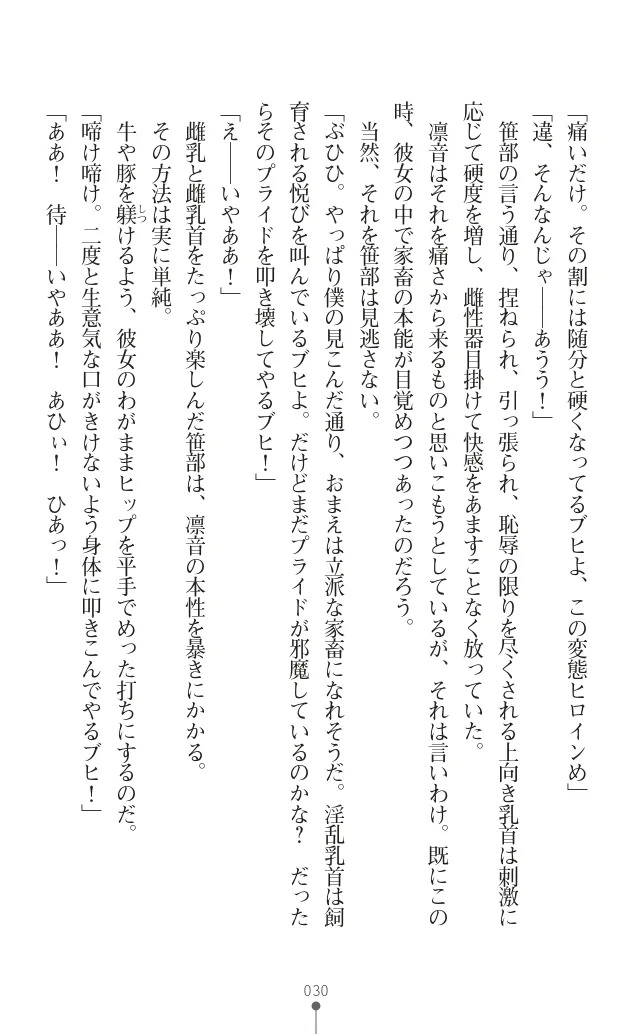 「痛いだけ。その割には随分と硬くなってるブヒよ、この変態ヒロインめ」
「違、そんなんじゃ――あうう！」
　笹部の言う通り、捏ねられ、引っ張られ、恥辱の限りを尽くされる上向き乳首は刺激に
応じて硬度を増し、雌性器目掛けて快感をあますことなく放っていた。
　凛音はそれを痛さから来るものと思いこもうとしているが、それは言いわけ。既にこの
時、彼女の中で家畜の本能が目覚めつつあったのだろう。
　当然、それを笹部は見逃さない。
「ぶひひ。やっぱり僕の見こんだ通り、おまえは立派な家畜になれそうだ。淫乱乳首は飼
育される悦びを叫んでいるブヒよ。だけどまだプライドが邪魔しているのかな？　だった
らそのプライドを叩き壊してやるブヒ！」
「え――いやああ！」
　雌乳と雌乳首をたっぷり楽しんだ笹部は、凛音の本性を暴きにかかる。
　その方法は実に単純。
　牛や豚を躾しつけるよう、彼女のわがままヒップを平手でめった打ちにするのだ。
「啼け啼け。二度と生意気な口がきけないよう身体に叩きこんでやるブヒ！」
「ああ！　待――いやああ！　あひぃ！　ひあっ！」
030